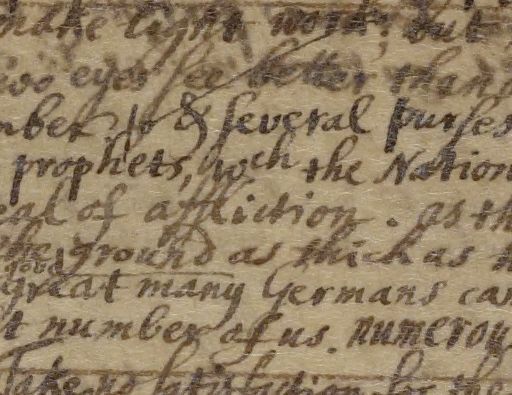 make light work; but
two eyes see better than
mber so & several purses
prophets, wch the Nation
eal of affliction. as th
the ground as thick as
great many Germans can
t number of us. numerou
take no satisfaction